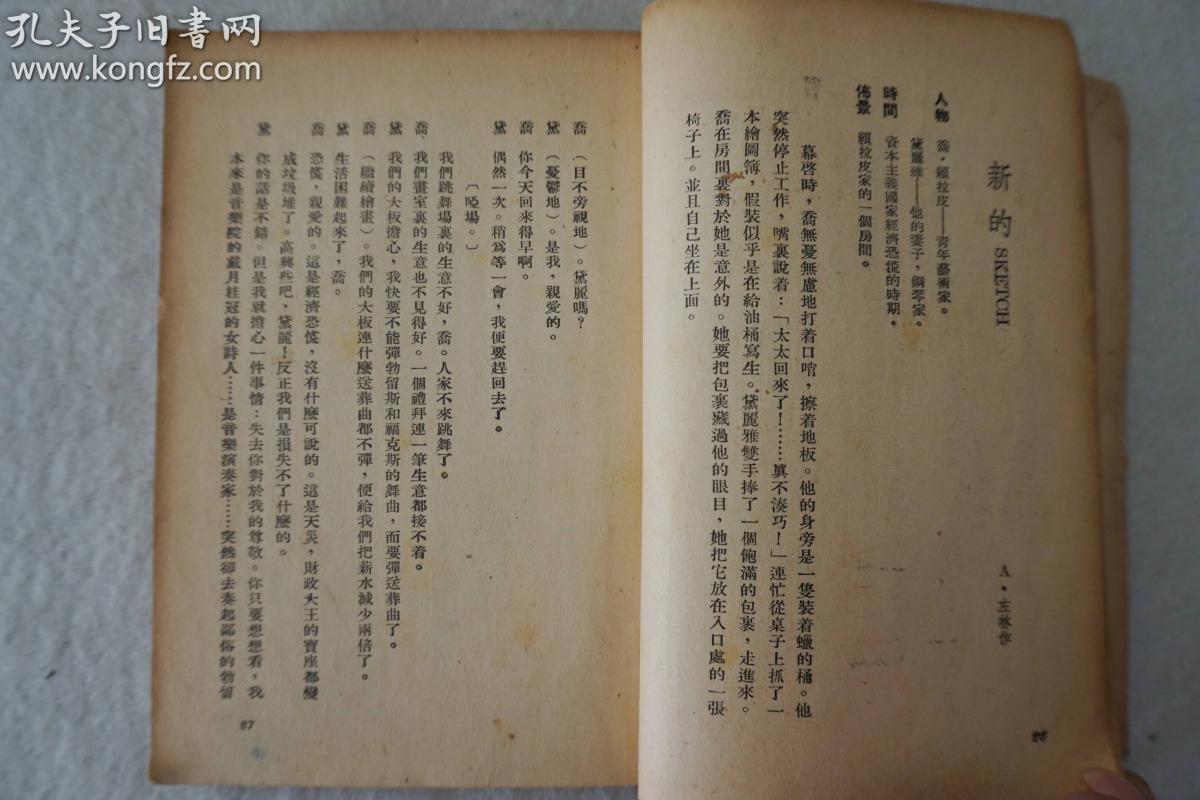 孔夫子旧书网
www.kongfz.com
新的 SKETCH
A·左林作
人物 喬·賴拉皮——青年藝術家。
黛麗雅——他的妻子，鋼琴家。
時間 資本主義國家經濟恐慌的時期。
佈景 賴拉皮家的一個房間。
幕啓時，喬無憂無慮地打着口哨，擦着地板。他的身旁是一隻裝着蠟的桶。他
突然停止工作，嘴裏說着：「太太回來了！……眞不湊巧！」連忙從桌子上抓了一
本繪圖簿，假裝似乎是在給油桶寫生。黛麗雅雙手捧了一個飽滿的包裹，走進來。
喬在房間裏對於她是意外的。她要把包裹藏過他的眼目，她把它放在入口處的一張
椅子上。並且自己坐在上面。
26
喬 （目不旁視地）。黛麗嗎？
黛 （憂鬱地）。是我，親愛的。
喬 你今天回來得早啊。
黛 偶然一次。稍爲等一會，我便要趕回去了。
〔啞場。〕
我們跳舞場裏的生意不好，喬。人家不來跳舞了。
喬 我們畫室裏的生意也不見得好。一個禮拜連一筆生意都接不着。
黛 我們的大板擔心，我快要不能彈勃留斯和福克斯的舞曲，而要彈送葬曲了。
喬 （繼續繪畫）。我們的大板連什麼送葬曲都不彈，便給我們把薪水減少兩倍了。
黛 生活困難起來了，喬。
喬 恐慌，親愛的。這是經濟恐慌，沒有什麼可說的。這是天災，財政大王的寶座都變
成垃圾堆了。高興些吧，黛麗！反正我們是損失不了什麼的。
黛 你的話是不錯。但是我就擔心一件事情：失去你對於我的尊敬。你只要想想看，我
本來是音樂院的戴月桂冠的女詩人……是音樂演奏家……突然卻去奏起鄙俗的勃留
27